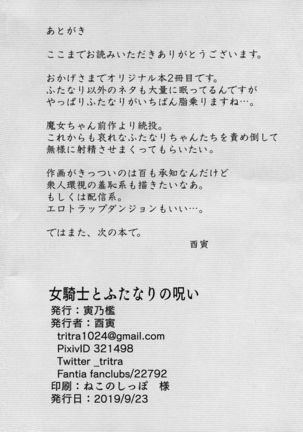 あとがき
ここまでお読みいただきありがとうございます。
おかげさまでオリジナル本2冊目です。
ふたなり以外のネタも大量に眠ってるんですが
やっぱりふたなりがいちばん脂乗りますね…。
魔女ちゃん前作より続投。
これからも哀れなふたなりちゃんたちを責め倒して
無様に射精させまくってもらいたい。
作画がきっついのは百も承知なんだけど
衆人環視の羞恥系も描きたいなあ。
もしくは配信系。
エロトラップダンジョンもいい…。
ではまた、次の本で。
酉寅
女騎士とふたなりの呪い
発行：寅乃檻
発行者：酉寅
tritra1024@gmail.com
PixivID 321498
Twitter _tritra
Fantia fanclubs/22792
印刷：ねこのしっぽ 様
発行日：2019/9/23